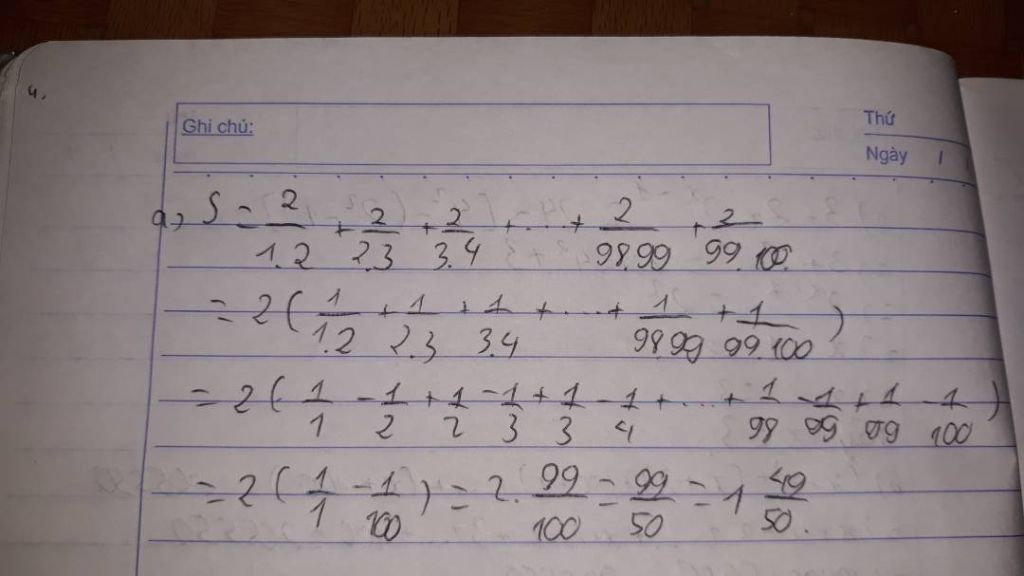 4.
Ghi chú:
Thứ
Ngày /
a, S = 2/1.2 + 2/2.3 + 2/3.4 + ... + 2/98.99 + 2/99.100.
= 2 ( 1/1.2 + 1/2.3 + 1/3.4 + ... + 1/98.99 + 1/99.100 )
= 2 ( 1/1 - 1/2 + 1/2 - 1/3 + 1/3 - 1/4 + ... + 1/98 - 1/99 + 1/99 - 1/100 )
= 2 ( 1/1 - 1/100 ) = 2. 99/100 = 99/50 = 1 49/50.